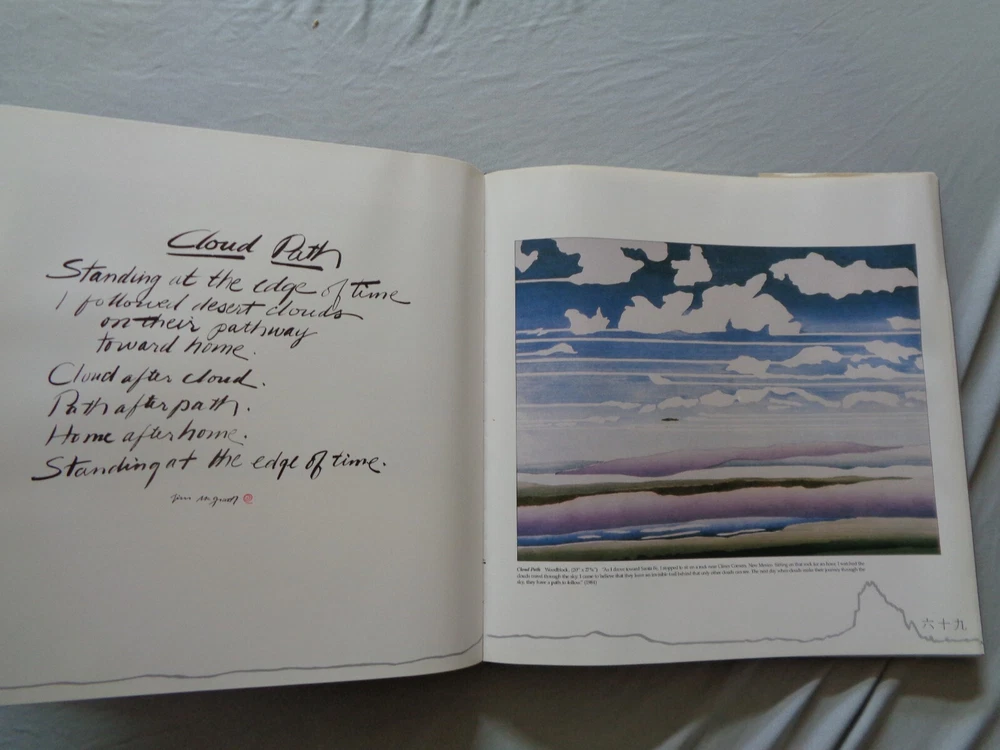 Cloud Path
Standing at the edge of time
I followed desert clouds
on their pathway
toward home.
Cloud after cloud.
Path after path.
Home after home.
Standing at the edge of time.
Cloud Path Woodblock, "As I drove toward Santa Fe, I stopped to sit on a rock near Clines Corners, New Mexico. Sitting on that rock for an hour, I watched the
clouds move through the sky. I came to believe that they leave an invisible trail behind that only other clouds can see. The next day when clouds make their journey through the
sky, they have a path to follow." (1981)
六十九